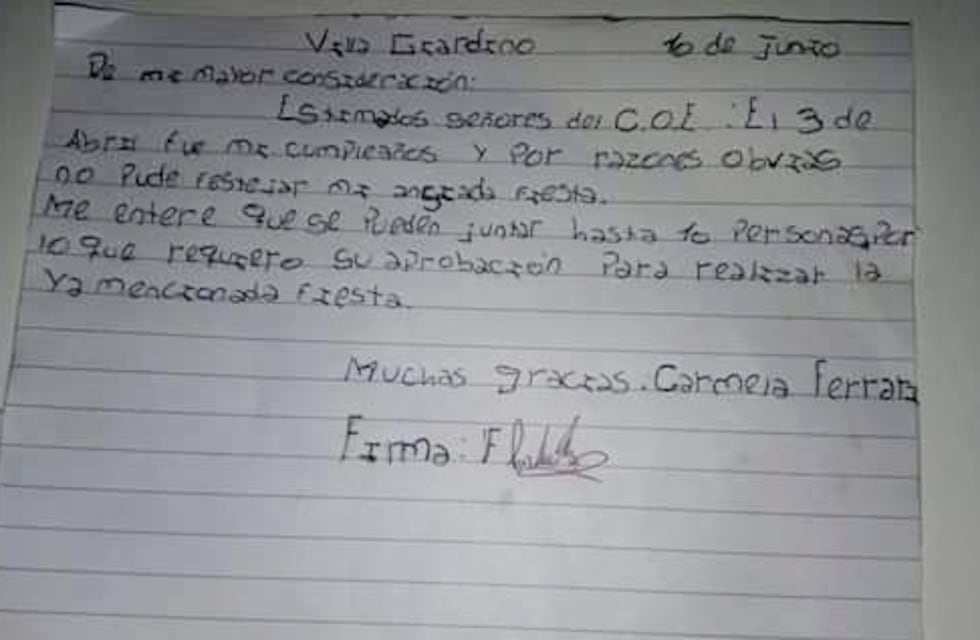 Villa Giardino 10 de junio
De mi mayor consideración:
Estimados señores del C.O.E : El 3 de
Abril fue mi cumpleaños y Por razones obvias
no Pude festejar mi ansiada fiesta.
Me entere que se Pueden juntar hasta 10 Personas, Por
lo que requiero su aprobación Para realizar la
Ya mencionada fiesta.
Muchas gracias. Carmela Ferrara
Firma: F